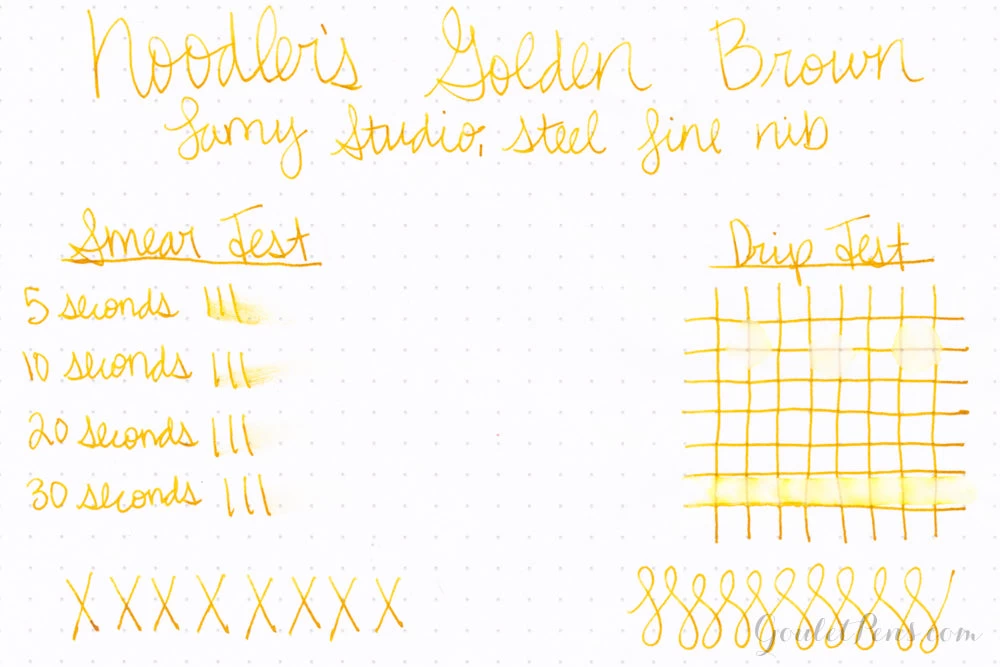 Noodler's Golden Brown
Lamy Studio, steel fine nib
Smear Test
5 seconds
10 seconds
20 seconds
30 seconds
Drip Test
GouletPens.com